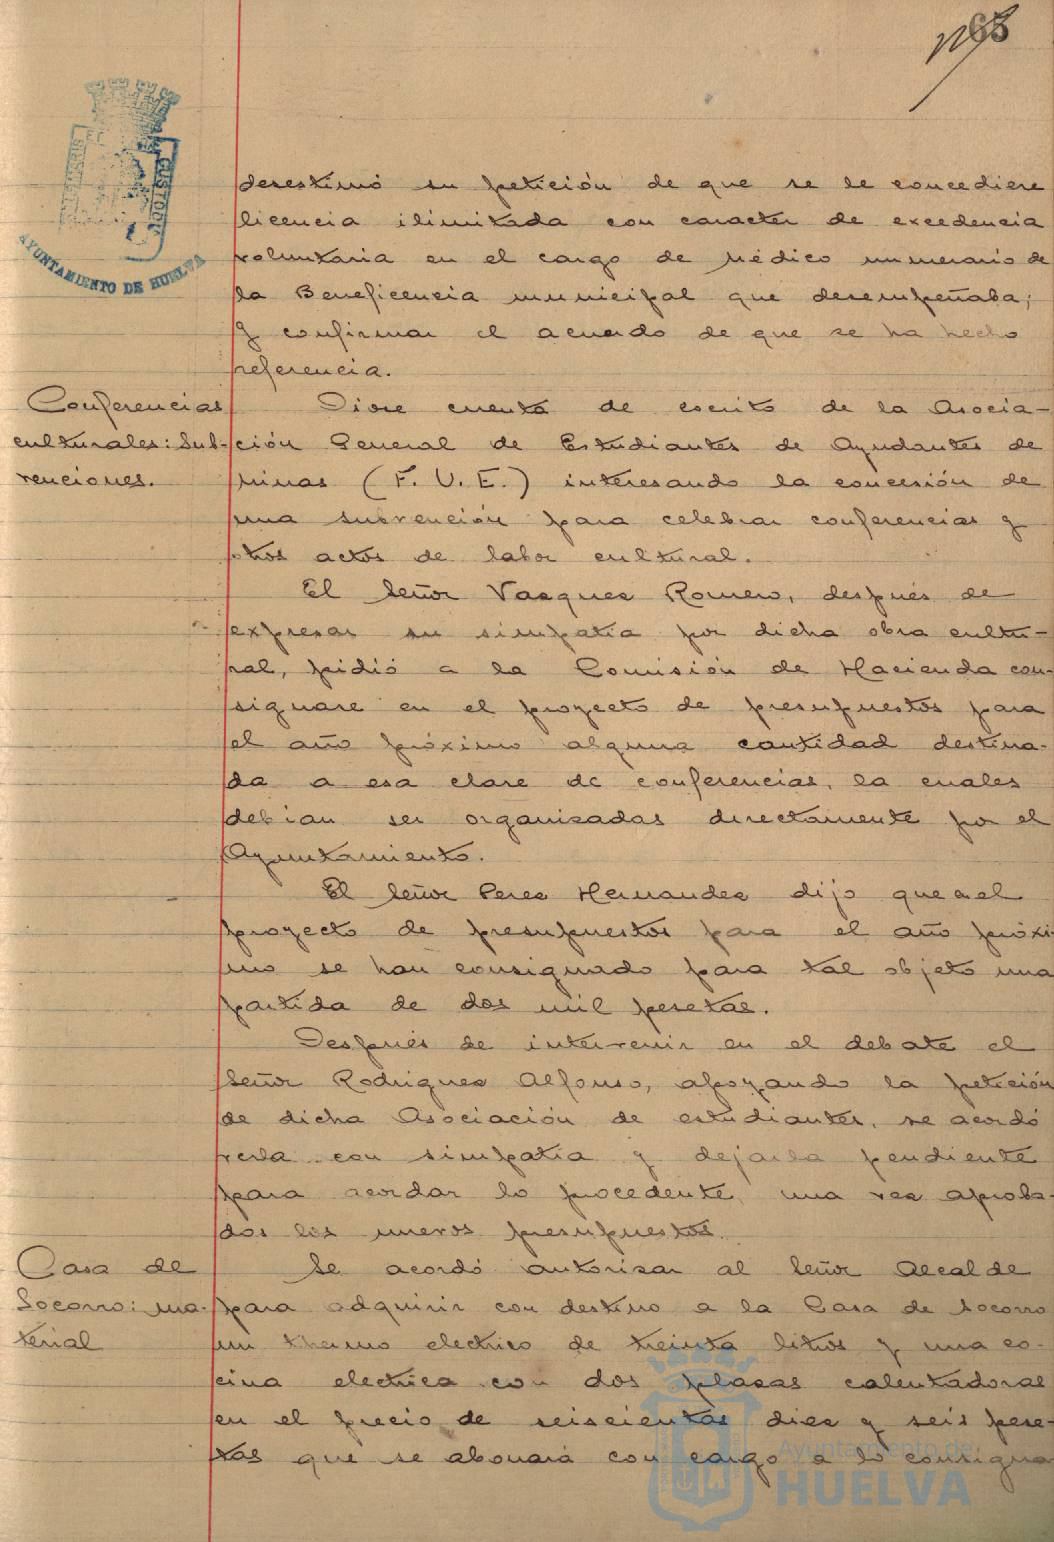 63
AYUNTAMIENTO DE HUELVA
desestimó su petición de que se le concediere
licencia ilimitada con caracter de excedencia
voluntaria en el cargo de Médico numerario de
la Beneficencia municipal que desempeñaba;
y confirmar el acuerdo de que se ha hecho
referencia.
Conferencias
culturales: Sub-
venciones.
Diose cuenta de escrito de la Asocia-
ción General de Estudiantes de Ayudantes de
Minas (F. U. E.) interesando la concesión de
una subvención para celebrar conferencias y
otros actos de labor cultural.
El Señor Vasques Romero, después de
expresar su simpatia por dicha obra cultu-
ral, pidió a la Comisión de Hacienda con-
signare en el proyecto de presupuestos para
el año próximo alguna cantidad destina-
da a esa clase de conferencias, la cuales
debian ser organizadas directamente por el
Ayuntamiento.
El Señor Peres Hernandez dijo que a el
proyecto de presupuestos para el año próxi-
mo se han consignado para tal objeto una
partida de dos mil pesetas.
Después de intervenir en el debate el
Señor Rodrigues Alfonso, apoyando la petición
de dicha Asociación de estudiantes, se acordó
verla con simpatia y dejarla pendiente
para acordar lo procedente, una vez aproba-
dos los nuevos presupuestos.
Casa de
Socorro: ma-
terial
Se acordó autorizar al Señor Alcalde
para adquirir con destino a la Casa de Socorro
un thermo electrico de treinta litros y una co-
cina electrica con dos plazas calentadoras
en el precio de seiscientas diez y seis pese-
tas que se abonará con cargo a lo consigna
Ayuntamiento de
HUELVA